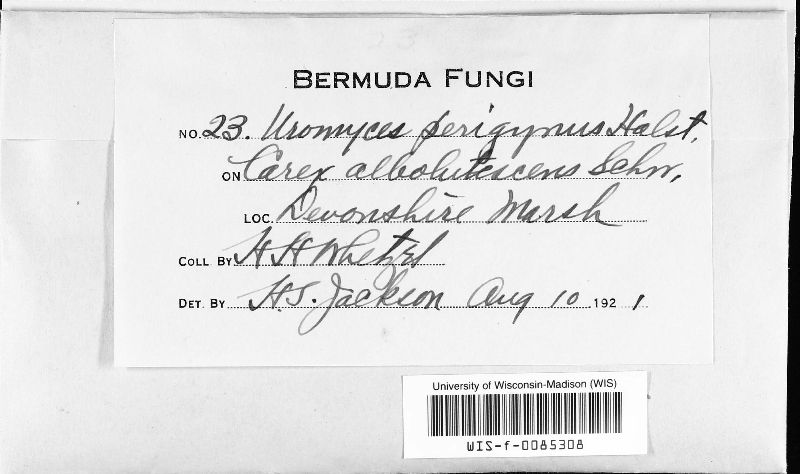 BERMUDA FUNGI
NO. 23. Uromyces perigynus Halst.
ON Carex albolutescens Schw.
LOC. Devonshire Marsh
COLL. BY H H Whetzel
DET. BY H.S. Jackson Aug 10 1921
University of Wisconsin-Madison (WIS)
WIS-f-0085308